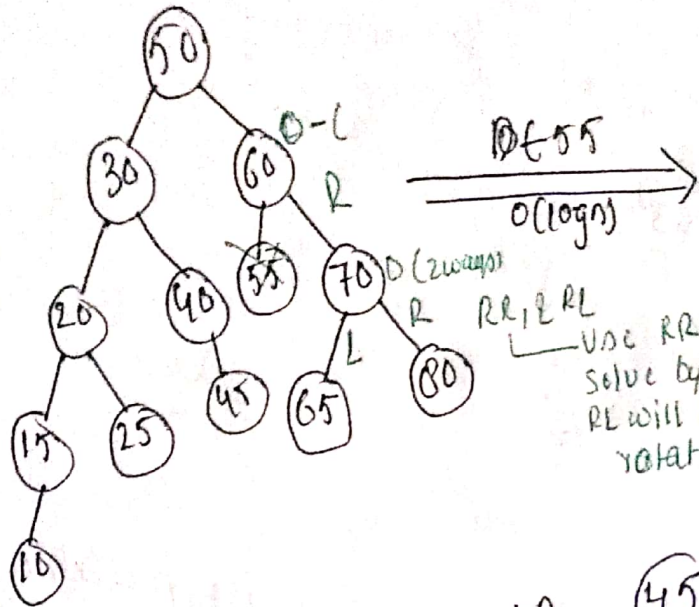 50
30 60 0-L
R
DE 55
O(logn)
20 40 55 70 0 (2ways)
L R
RR, & RL
Use RR
Solve by
RL will
rotat
15 25 45 65 80
10
45